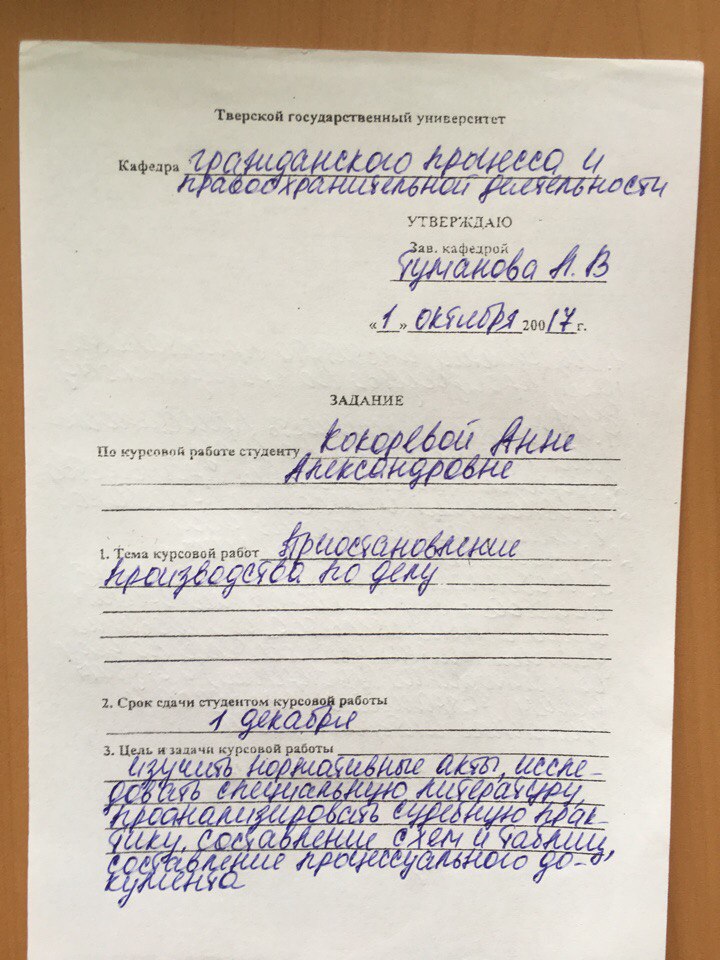 Тверской государственный университет
Кафедра гражданского процесса и
правоохранительной деятельности
УТВЕРЖДАЮ
Зав. кафедрой
Туманова Л. В
«1» октября 20017 г.
ЗАДАНИЕ
По курсовой работе студенту Кокоревой Анне
Александровне
1. Тема курсовой работ Приостановление
производства по делу
2. Срок сдачи студентом курсовой работы
1 декабря
3. Цель и задачи курсовой работы
изучить нормативные акты, иссле-
довать специальную литературу,
проанализировать судебную прак-
тику, составление схем и таблиц,
составление процессуального до-
кумента